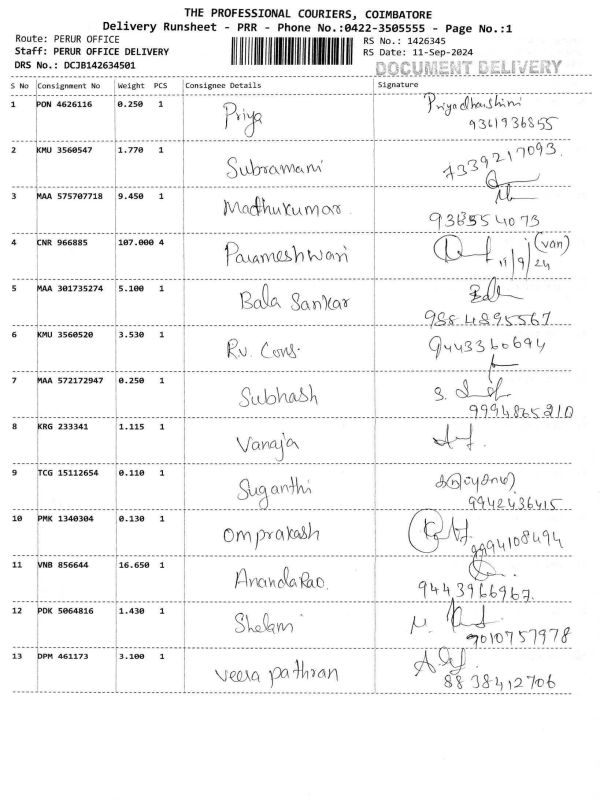 THE PROFESSIONAL COURIERS, COIMBATORE
Delivery Runsheet - PRR - Phone No.:0422-3505555 - Page No.:1
Route: PERUR OFFICE RS No.: 1426345
Staff: PERUR OFFICE DELIVERY RS Date: 11-Sep-2024
DRS No.: DCJB142634501 DOCUMENT DELIVERY
S No Consignment No Weight PCS Consignee Details Signature
1 PON 4626116 0.250 1 Priya Priyadharshini
9361936855
2 KMU 3560547 1.770 1 Subramani 7339217093.
3 MAA 575707718 9.450 1 Madhukumar
936554073
4 CNR 966885 107.000 4 Parameshwari (van)
11/9/24
5 MAA 301735274 5.100 1 Bala Sankar
9884895567
6 KMU 3560520 3.530 1 Rv. Cons. 9443360694
7 MAA 572172947 0.250 1 Subhash
9994865210
8 KRG 233341 1.115 1 Vanaja
9 TCG 15112654 0.110 1 Suganthi
9942436415
10 PMK 1340304 0.130 1 Omprakash
9994108494
11 VNB 856644 16.650 1 AnandaRao.
9443966967.
12 PDK 5064816 1.430 1 Shelani
9010757978
13 DPM 461173 3.100 1 Veera pathran
8838412706